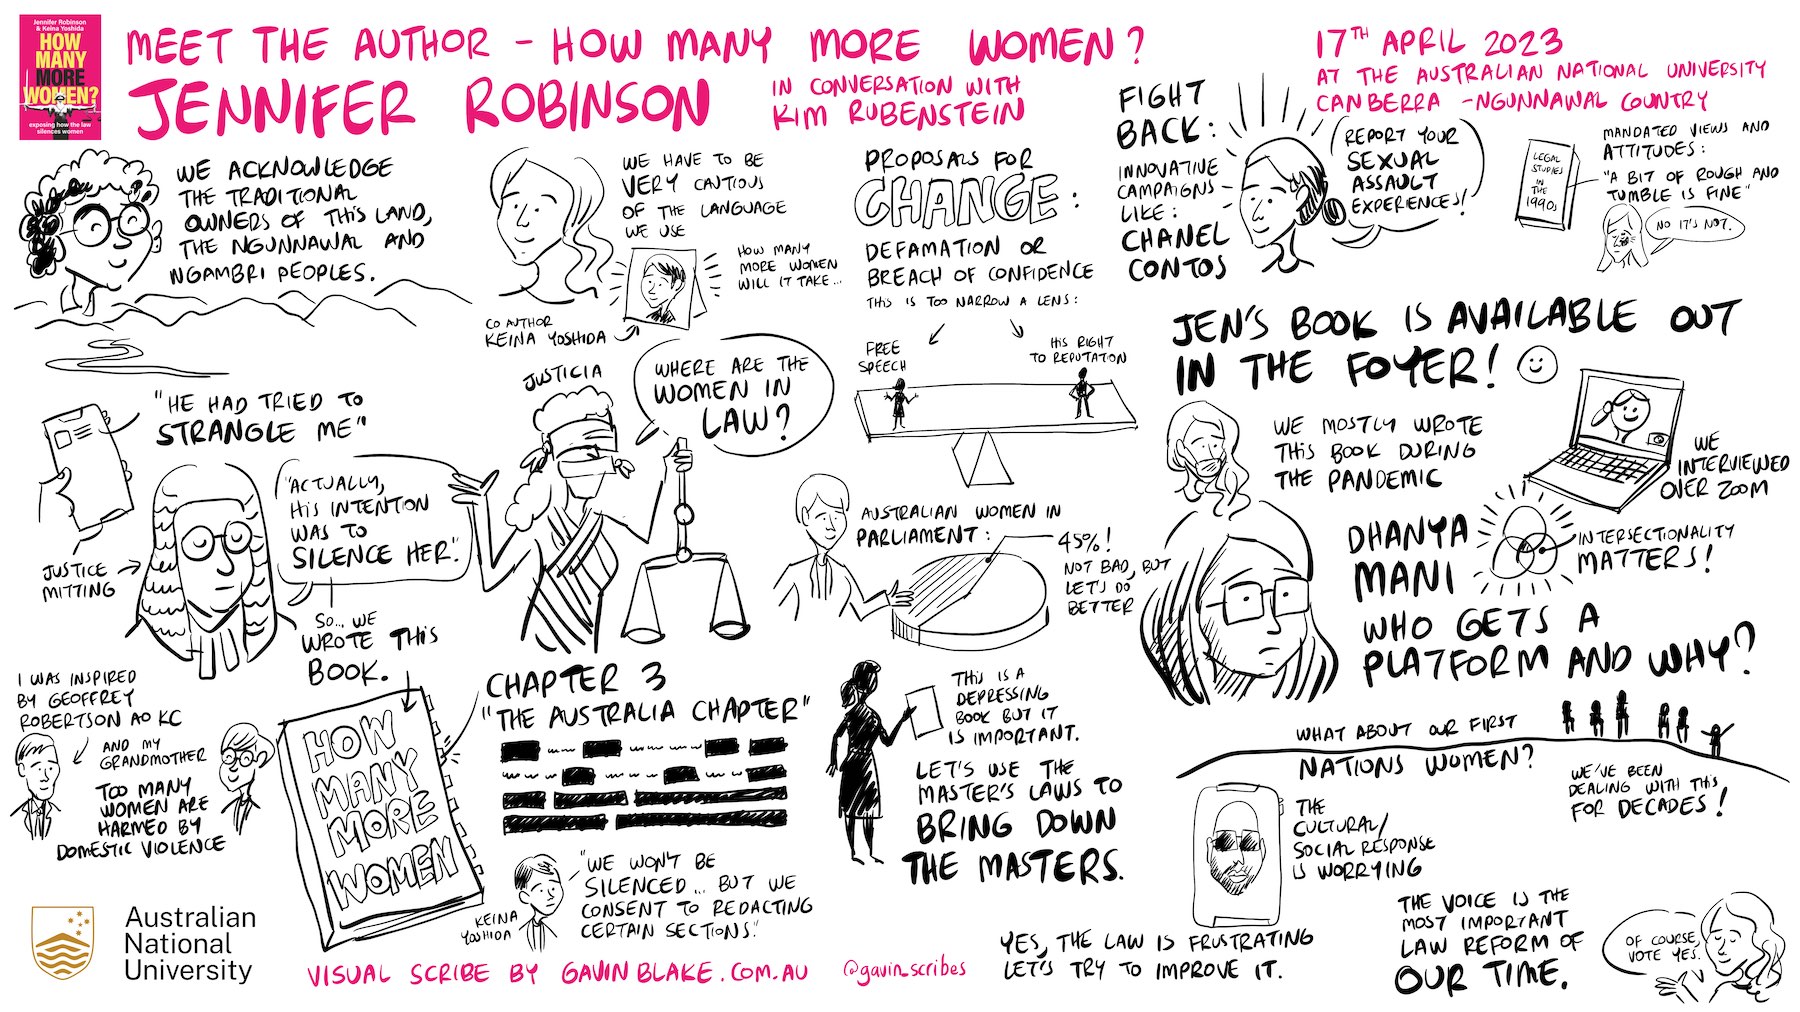 Jennifer Robinson
& Keina Yoshida
HOW
MANY
MORE
WOMEN?
exposing how the law
silences women
MEET THE AUTHOR - HOW MANY MORE WOMEN?
JENNIFER ROBINSON
IN CONVERSATION WITH
KIM RUBENSTEIN
17TH APRIL 2023
AT THE AUSTRALIAN NATIONAL UNIVERSITY
CANBERRA - NGUNNAWAL COUNTRY
WE ACKNOWLEDGE
THE TRADITIONAL
OWNERS OF THIS LAND,
THE NGUNNAWAL AND
NGAMBRI PEOPLES.
WE HAVE TO BE
VERY CAUTIOUS
OF THE LANGUAGE
WE USE
HOW MANY
MORE WOMEN
WILL IT TAKE...
CO AUTHOR
KEINA YOSHIDA
PROPOSALS FOR
CHANGE:
DEFAMATION OR
BREACH OF CONFIDENCE
THIS IS TOO NARROW A LENS:
FREE
SPEECH
HIS RIGHT
TO REPUTATION
FIGHT
BACK:
INNOVATIVE
CAMPAIGNS
LIKE:
CHANEL
CONTOS
REPORT YOUR
SEXUAL
ASSAULT
EXPERIENCES!
LEGAL
STUDIES
IN THE
1990s
MANDATED VIEWS AND
ATTITUDES:
"A BIT OF ROUGH AND
TUMBLE IS FINE"
NO IT'S NOT.
JEN'S BOOK IS AVAILABLE OUT
IN THE FOYER!
WE MOSTLY WROTE
THIS BOOK DURING
THE PANDEMIC
WE
INTERVIEWED
OVER ZOOM
"HE HAD TRIED TO
STRANGLE ME"
JUSTICE
MITTING
"ACTUALLY,
HIS INTENTION
WAS TO
SILENCE HER."
SO... WE
WROTE THIS
BOOK.
JUSTICIA
WHERE ARE THE
WOMEN IN
LAW?
AUSTRALIAN WOMEN IN
PARLIAMENT:
45%!
NOT BAD, BUT
LET'S DO
BETTER
DHANYA
MANI
INTERSECTIONALITY
MATTERS!
WHO GETS A
PLATFORM AND WHY?
I WAS INSPIRED
BY GEOFFREY
ROBERTSON AO KC
AND MY
GRANDMOTHER
TOO MANY
WOMEN ARE
HARMED BY
DOMESTIC VIOLENCE
HOW
MANY
MORE
WOMEN
CHAPTER 3
"THE AUSTRALIA CHAPTER"
KEINA
YOSHIDA
"WE WON'T BE
SILENCED... BUT WE
CONSENT TO REDACTING
CERTAIN SECTIONS."
THIS IS A
DEPRESSING
BOOK BUT IT
IS IMPORTANT.
LET'S USE THE
MASTER'S LAWS TO
BRING DOWN
THE MASTERS.
WHAT ABOUT OUR FIRST
NATIONS WOMEN?
WE'VE BEEN
DEALING WITH THIS
FOR DECADES!
THE
CULTURAL/
SOCIAL RESPONSE
IS WORRYING
YES, THE LAW IS FRUSTRATING
LET'S TRY TO IMPROVE IT.
THE VOICE IS THE
MOST IMPORTANT
LAW REFORM OF
OUR TIME.
OF COURSE,
VOTE YES.
Australian
National
University
VISUAL SCRIBE BY GAVINBLAKE.COM.AU
@gavin_scribes